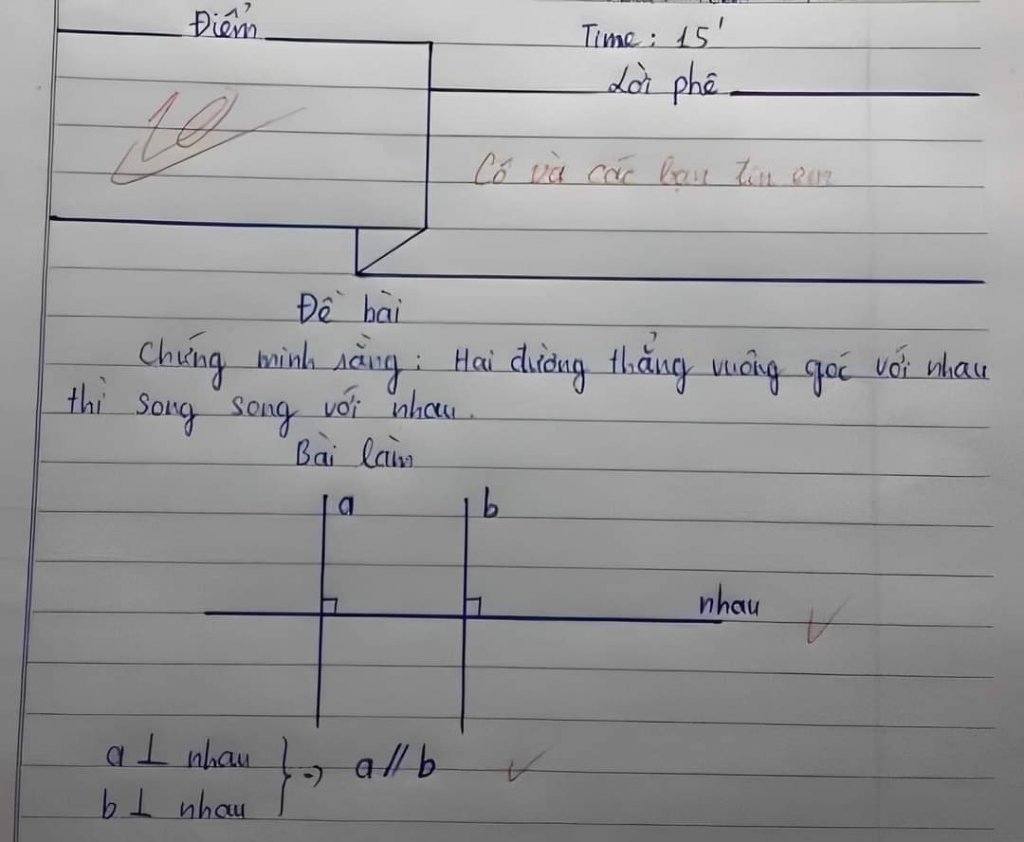 Điểm
Time: 15'
Lời phê
10
Cô và các bạn tin em
Đề bài
Chứng minh rằng: Hai đường thẳng vuông góc với nhau
thì song song với nhau.
Bài làm
a b
nhau
a ⊥ nhau
b ⊥ nhau } => a // b